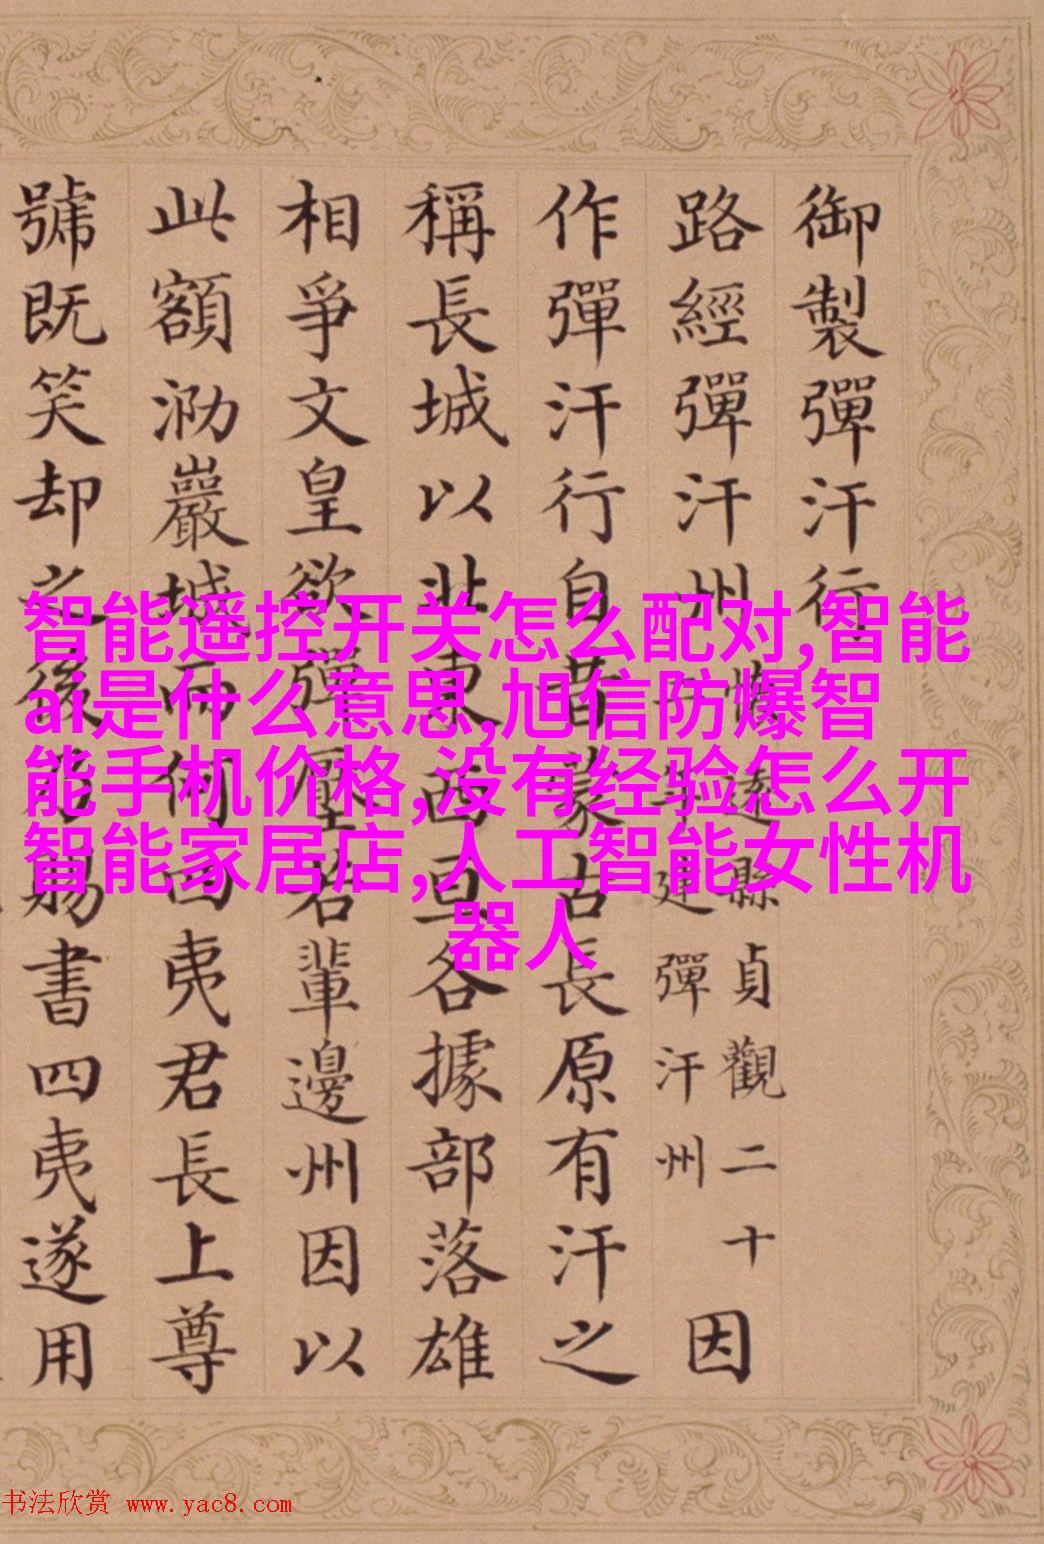 御製彈汗行
路經彈汗州
遠縣貞觀二十
年建彈汗州
因
作彈汗行自昔蒙古長原有汗之
稱長城以北東西亘各據部落雄
相爭文皇欲彈壓若輩邊州因以
此額泐巖城而何夷君長上尊
號既笑却之後賜書四夷遂用
智能遥控开关怎么配对,智能
ai是什么意思,旭信防爆智
能手机价格,没有经验怎么开
智能家居店,人工智能女性机
器人
书法欣赏 www.yac8.com